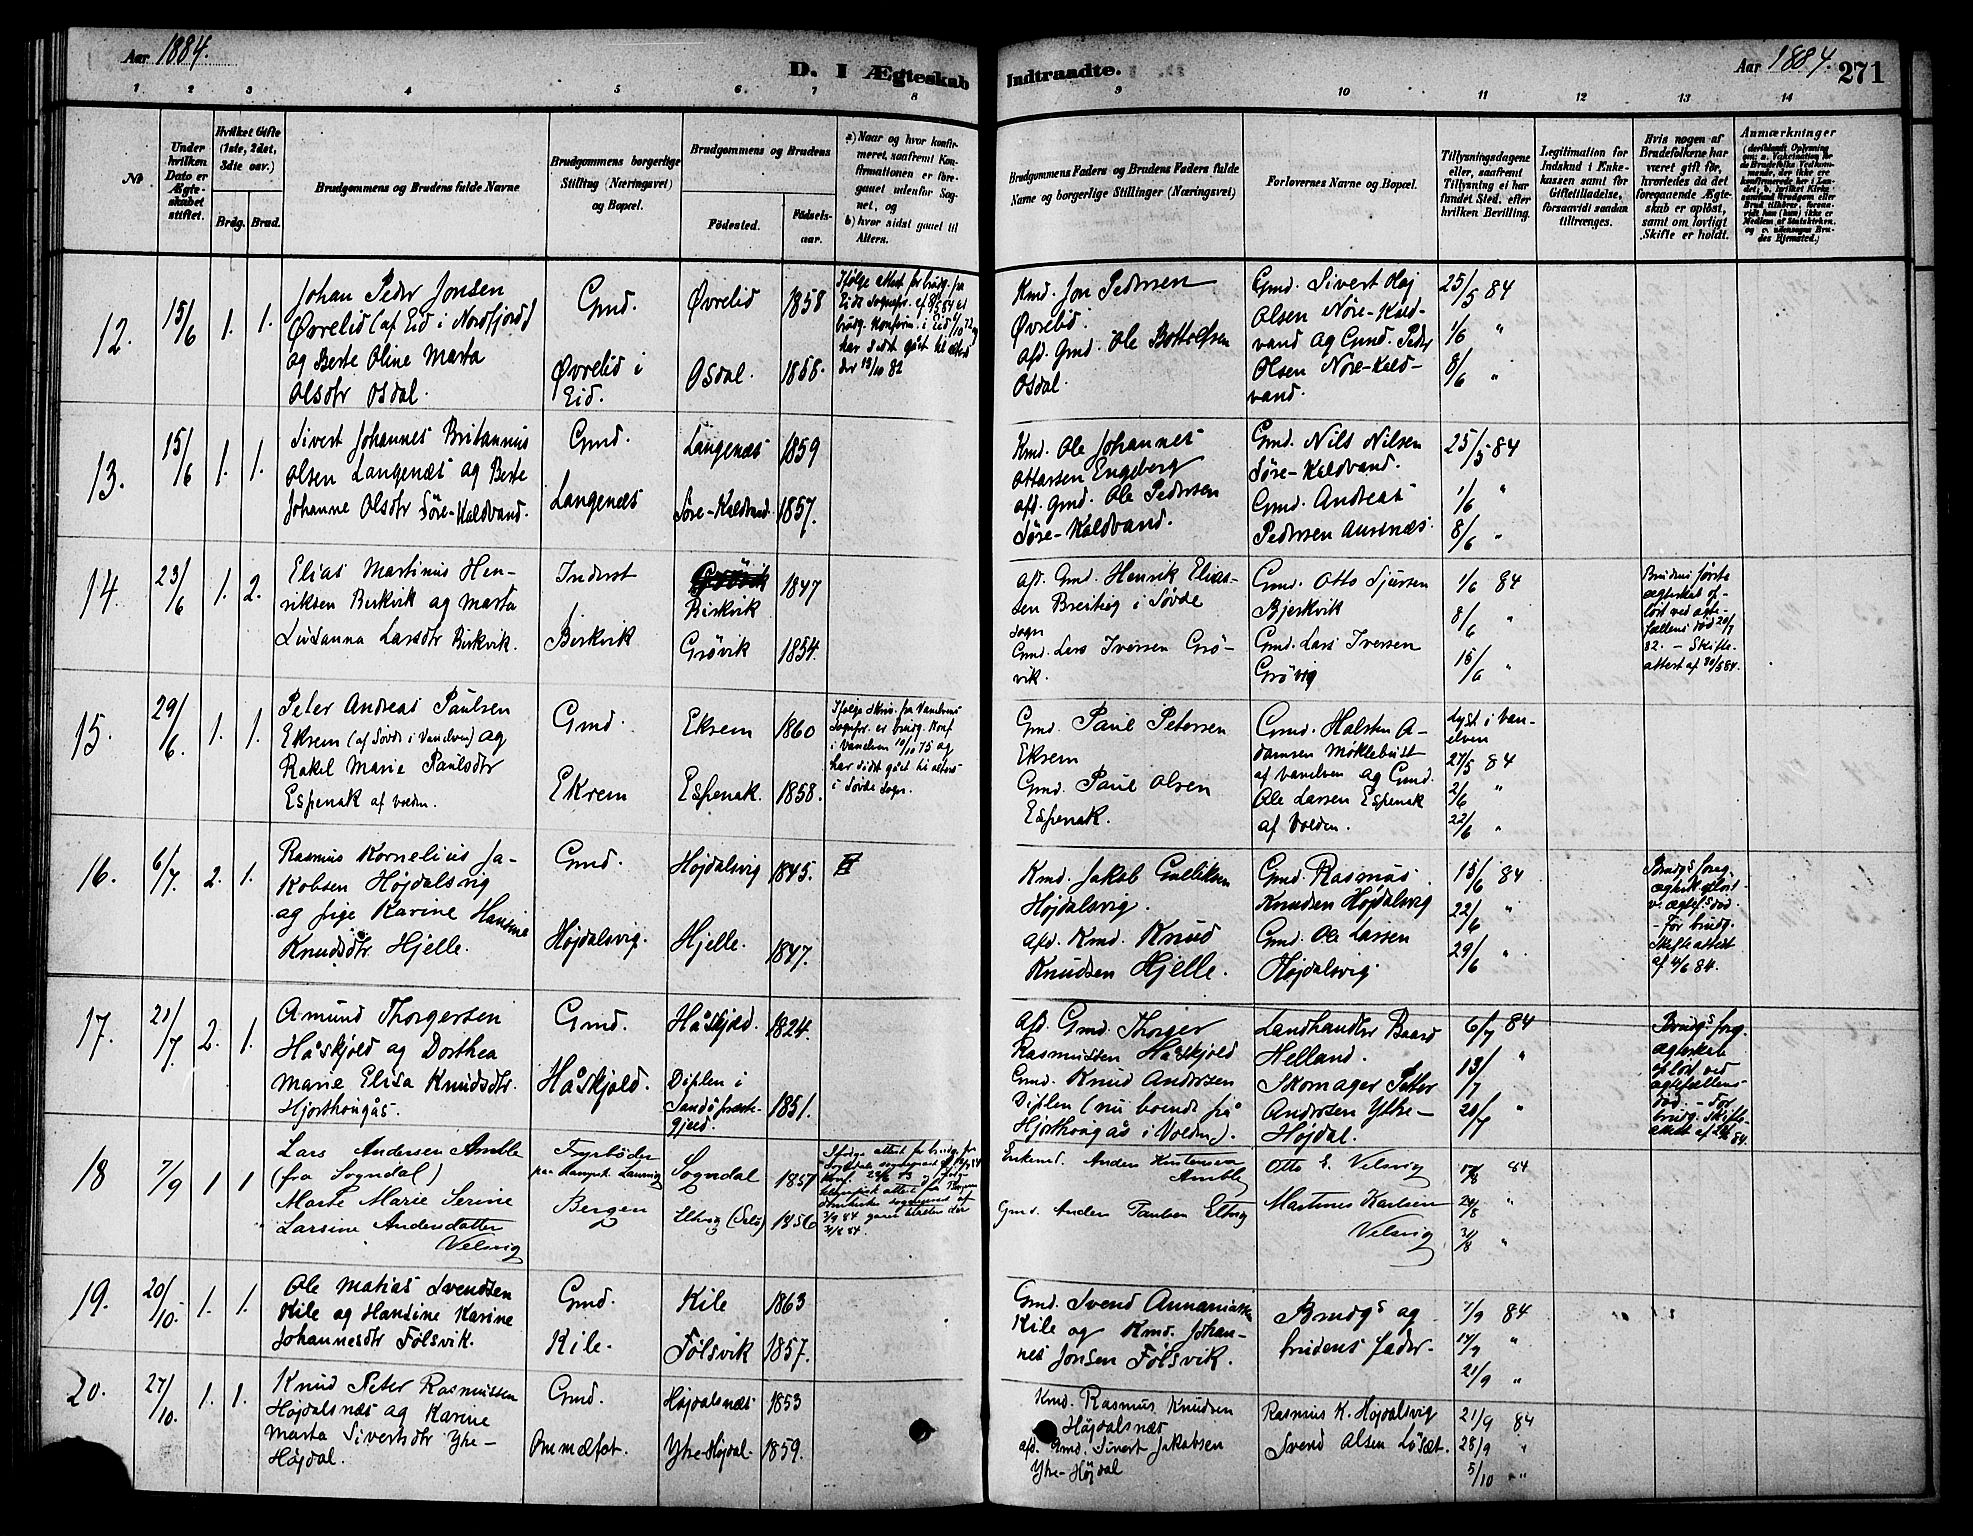 Aar 1884.
D. I Ægteskab
Indtraadte.
Aar 1884.
271
1 2 3 4 5 6 7 8 9 10 11 12 13 14
No
Under hvilken Dato er Ægteskabet stiftet.
Hvilket Gifte (1ste, 2det, 3die osv.)
Brdg. Brud.
Brudgommens og Brudens fulde Navne
Brudgommens borgerlige Stilling (Næringsvei) og Bopæl.
Brudgommens og Brudens
Fødested.
Fødselsaar.
a) Naar og hvor konfirmeret, saafremt Konfirmationen er foregaaet udenfor Sognet, og
b) hvor sidst gaaet til Alters.
Brudgommens Faders og Brudens Faders fulde Navne og borgerlige Stillinger (Næringsvei)
Forlovernes Navne og Bopæl.
Tillysningsdagene eller, saafremt Tillysning ei har fundet Sted, efter hvilken Bevilling.
Legitimation for Indskud i Enkekassen samt for Giftetilladelse, forsaavidt saadan tiltrænges.
Hvis nogen af Brudefolkene har været gift før, hvorledes da det foregaaende Ægteskab er opløst, samt om lovligt Skifte er holdt.
Anmærkninger
12. 15/6 1. 1.
Johan Peder Jonsen
Øvrelid (af Eid i Nordfjord)
og Berte Oline Marta
Olsdtr Osdal.
Gmd.
Øvrelid i
Eid.
Øvrelid 1858
Osdal. 1858.
Ifølge attest for brudg. fra
Eids Sognepr. af 8/5 84 er
brudg. konfirm. i Eid 6/10 72 og
har sidst gået til alters
der 18/10 82
Kmd. Jon Pedersen
Øvrelid.
afd. Gmd. Ole Bottolfsen
Osdal.
Gmd. Sivert Høj
Olsen Nöre-Kaldvand
og Gmd. Peder
Olsen Nöre-Kaldvand.
25/5 84
1/6 "
8/6 "
13. 15/6 1. 1.
Sivert Johannes Britannus
Olsen Langenæs og Berte
Johanne Olsdtr Søre-Kaldvand.
Gmd.
Langenæs
Langenæs 1859
Søre-Kaldvand 1857.
Kmd. Ole Johannes
Ottarsen Engeberg
afd. Gmd. Ole Pedersen
Søre-Kaldvand.
Gmd. Nils Nilsen
Søre-Kaldvand.
Gmd. Andreas
Pedersen Aurenæs.
25/5 84
1/6 "
8/6 "
14. 23/6 1. 2.
Elias Martinus Henriksen
Birkvik og Marta
Lusanna Larsdtr Birkvik.
Inderst
Birkvik
Birkvik 1847
Grövik 1854.
afd. Gmd. Henrik Eliassen
Breiteig i Søvde
Sogn
Gmd. Lars Iversen Grövik.
Gmd. Otto Sjursen
Bjerkvik
Gmd. Lars Iversen
Grövig
1/6 84
8/6 "
15/6 "
Brudens første
ægteskab opløst
ved ægtefællens
død 20/7
82. – Skifteattest
af 20/5 84.
15. 29/6. 1. 1.
Peter Andreas Paulsen
Eksem (af Søvde i Vanelven) og
Rakel Marie Paulsdtr
Espenak af Volden.
Gmd.
Ekrem
Eksem 1860
Espenak. 1858.
Ifølge Skriv. fra Vanelvens
Sognepr. er brudg. konf
i Vanelven 10/10 75 og
har sidst gået til alters
i Søvde Sogn.
Gmd. Paul Petersen
Eksem
Gmd. Paul Olsen
Espenak.
Gmd. Halsten Adamsen
Møklebust
af Vanelven og Gmd.
Ole Larsen Espenak
af Volden.
Lyst i Vanelven
27/5 84
2/6 "
22/6 "
16. 6/7. 2. 1.
Rasmus Kornelius Jakobsen
Højdalsvig
og pige Karine Hansine
Knudsdtr Hjelle.
Gmd.
Højdalsvig.
Højdalsvig 1845.
Hjelle. 1847.
Kmd. Jakob Gulliksen
Højdalsvig.
Afd. Kmd. Knud
Knudsen Hjelle.
Gmd. Rasmus
Knudsen Højdalsvig
Gmd. Ole Larsen
Højdalsvig.
15/6 84
22/6 "
29/6 "
Brudgs foreg.
ægtesk. opløst
v. ægtef.s død.
– For brudg.
Skifteattest
af 4/6 84.
17. 21/7 2. 1.
Amund Thorgersen
Håskjold og Dorthea
Marie Elisa Knudsdtr.
Hjorthougås.
Gmd.
Håskjold.
Håskjold. 1824.
Diplen i
Sandö præstegjeld. 1851.
Afd. Gmd. Thorger
Rasmussen Håskjold
Gmd. Knud Andersen
Diplen (nu boende på
Hjorthougås i Volden).
Landhandler Baard
Helland.
Skomager Petter
Andersen Ytre-
Højdal.
6/7 84
13/7 "
20/7 "
Brudgs foreg.
ægteskab
opløst ved
ægtefællens
død. – For
brudg. Skifteattest
af
18 7/9 1 1
Lars Andersen Amble
(fra Sogndal)
Marte Marie Serine
Larsine Andersdatter
Velsvig
Fyrbøder
Bergen
Sogndal 1857
Eltvig (Selø) 1856
Enkemd. Anders Kristensen
Amble
Gmd. Anders Paulsen Eltvig
Otto E. Velsvig
Martinus Karlsen
Velsvig
17/8 84
24/8 "
31/8 "
19. 20/10. 1. 1.
Ole Matias Svendsen
Kile og Hansine Karine
Johannesdtr Følsvik.
Gmd.
Kile.
Kile 1863
Følsvik 1857.
Gmd. Svend Annaniassen
Kile og Kmd. Johannes
Jonsen Følsvik.
Brudgs og
brudens fader.
7/9 84
14/9 "
21/9 "
20. 27/10. 1. 1.
Knud Peter Rasmussen
Højdalsnæs og Karine
Marta Sivertsdtr Ytre-
Højdal.
Gmd.
Ommæfot.
Højdalsnæs 1853
Ytre-Højdal. 1859.
Kmd. Rasmus Knudsen
Højdalsnæs
afd. Gmd. Sivert Jakobsen
Ytre-Højdal
Rasmus K. Højdalsvig
Svend Olsen Løset.
21/9 84
28/9 "
5/10 "